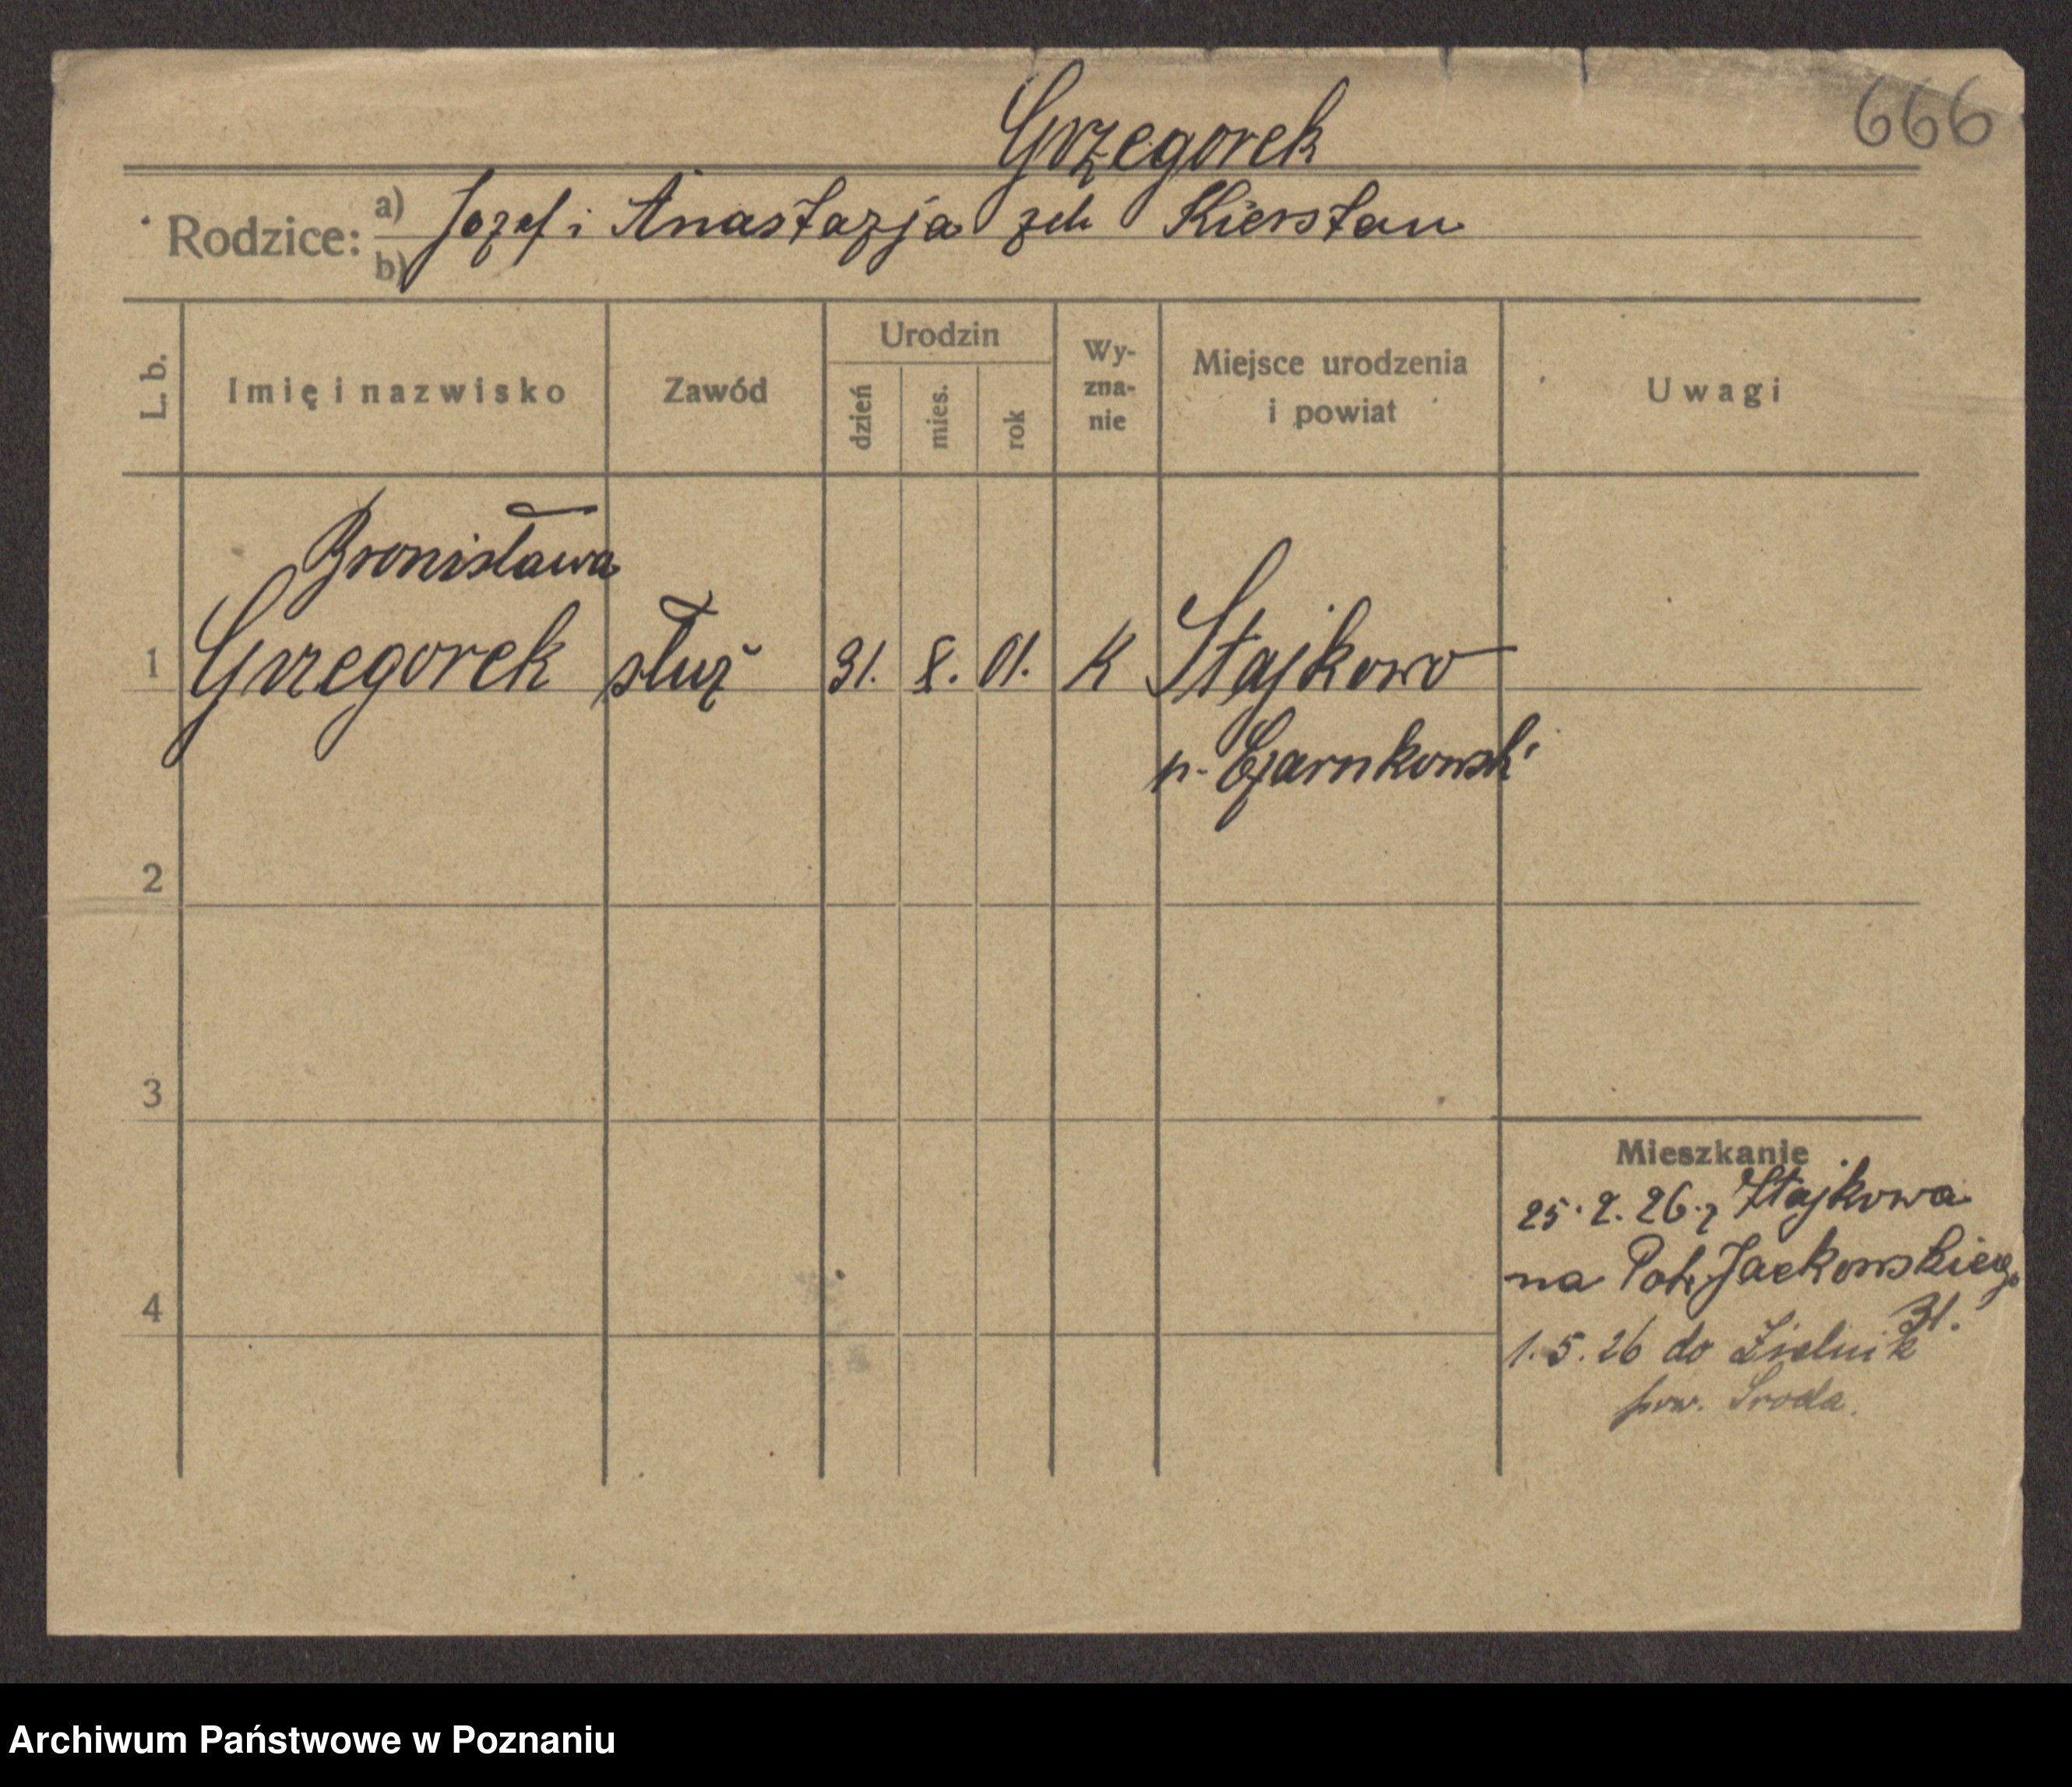 Grzegorek
666
Rodzice: a) Jozef i Anastazja zd Kierstan
b)
L. b. Imię i nazwisko Zawód Urodzin dzień mies. rok Wyznanie Miejsce urodzenia i powiat Uwagi
Bronisława
1 Grzegorek służ 31. 8. 01. K Stajkowo
p. Czarnkowski
2
3
Mieszkanie
25. 2. 26. z Stajkowa
na Jackowskiego
31.
4
1. 5. 26 do Zielnik
pow. Sroda.
Archiwum Państwowe w Poznaniu